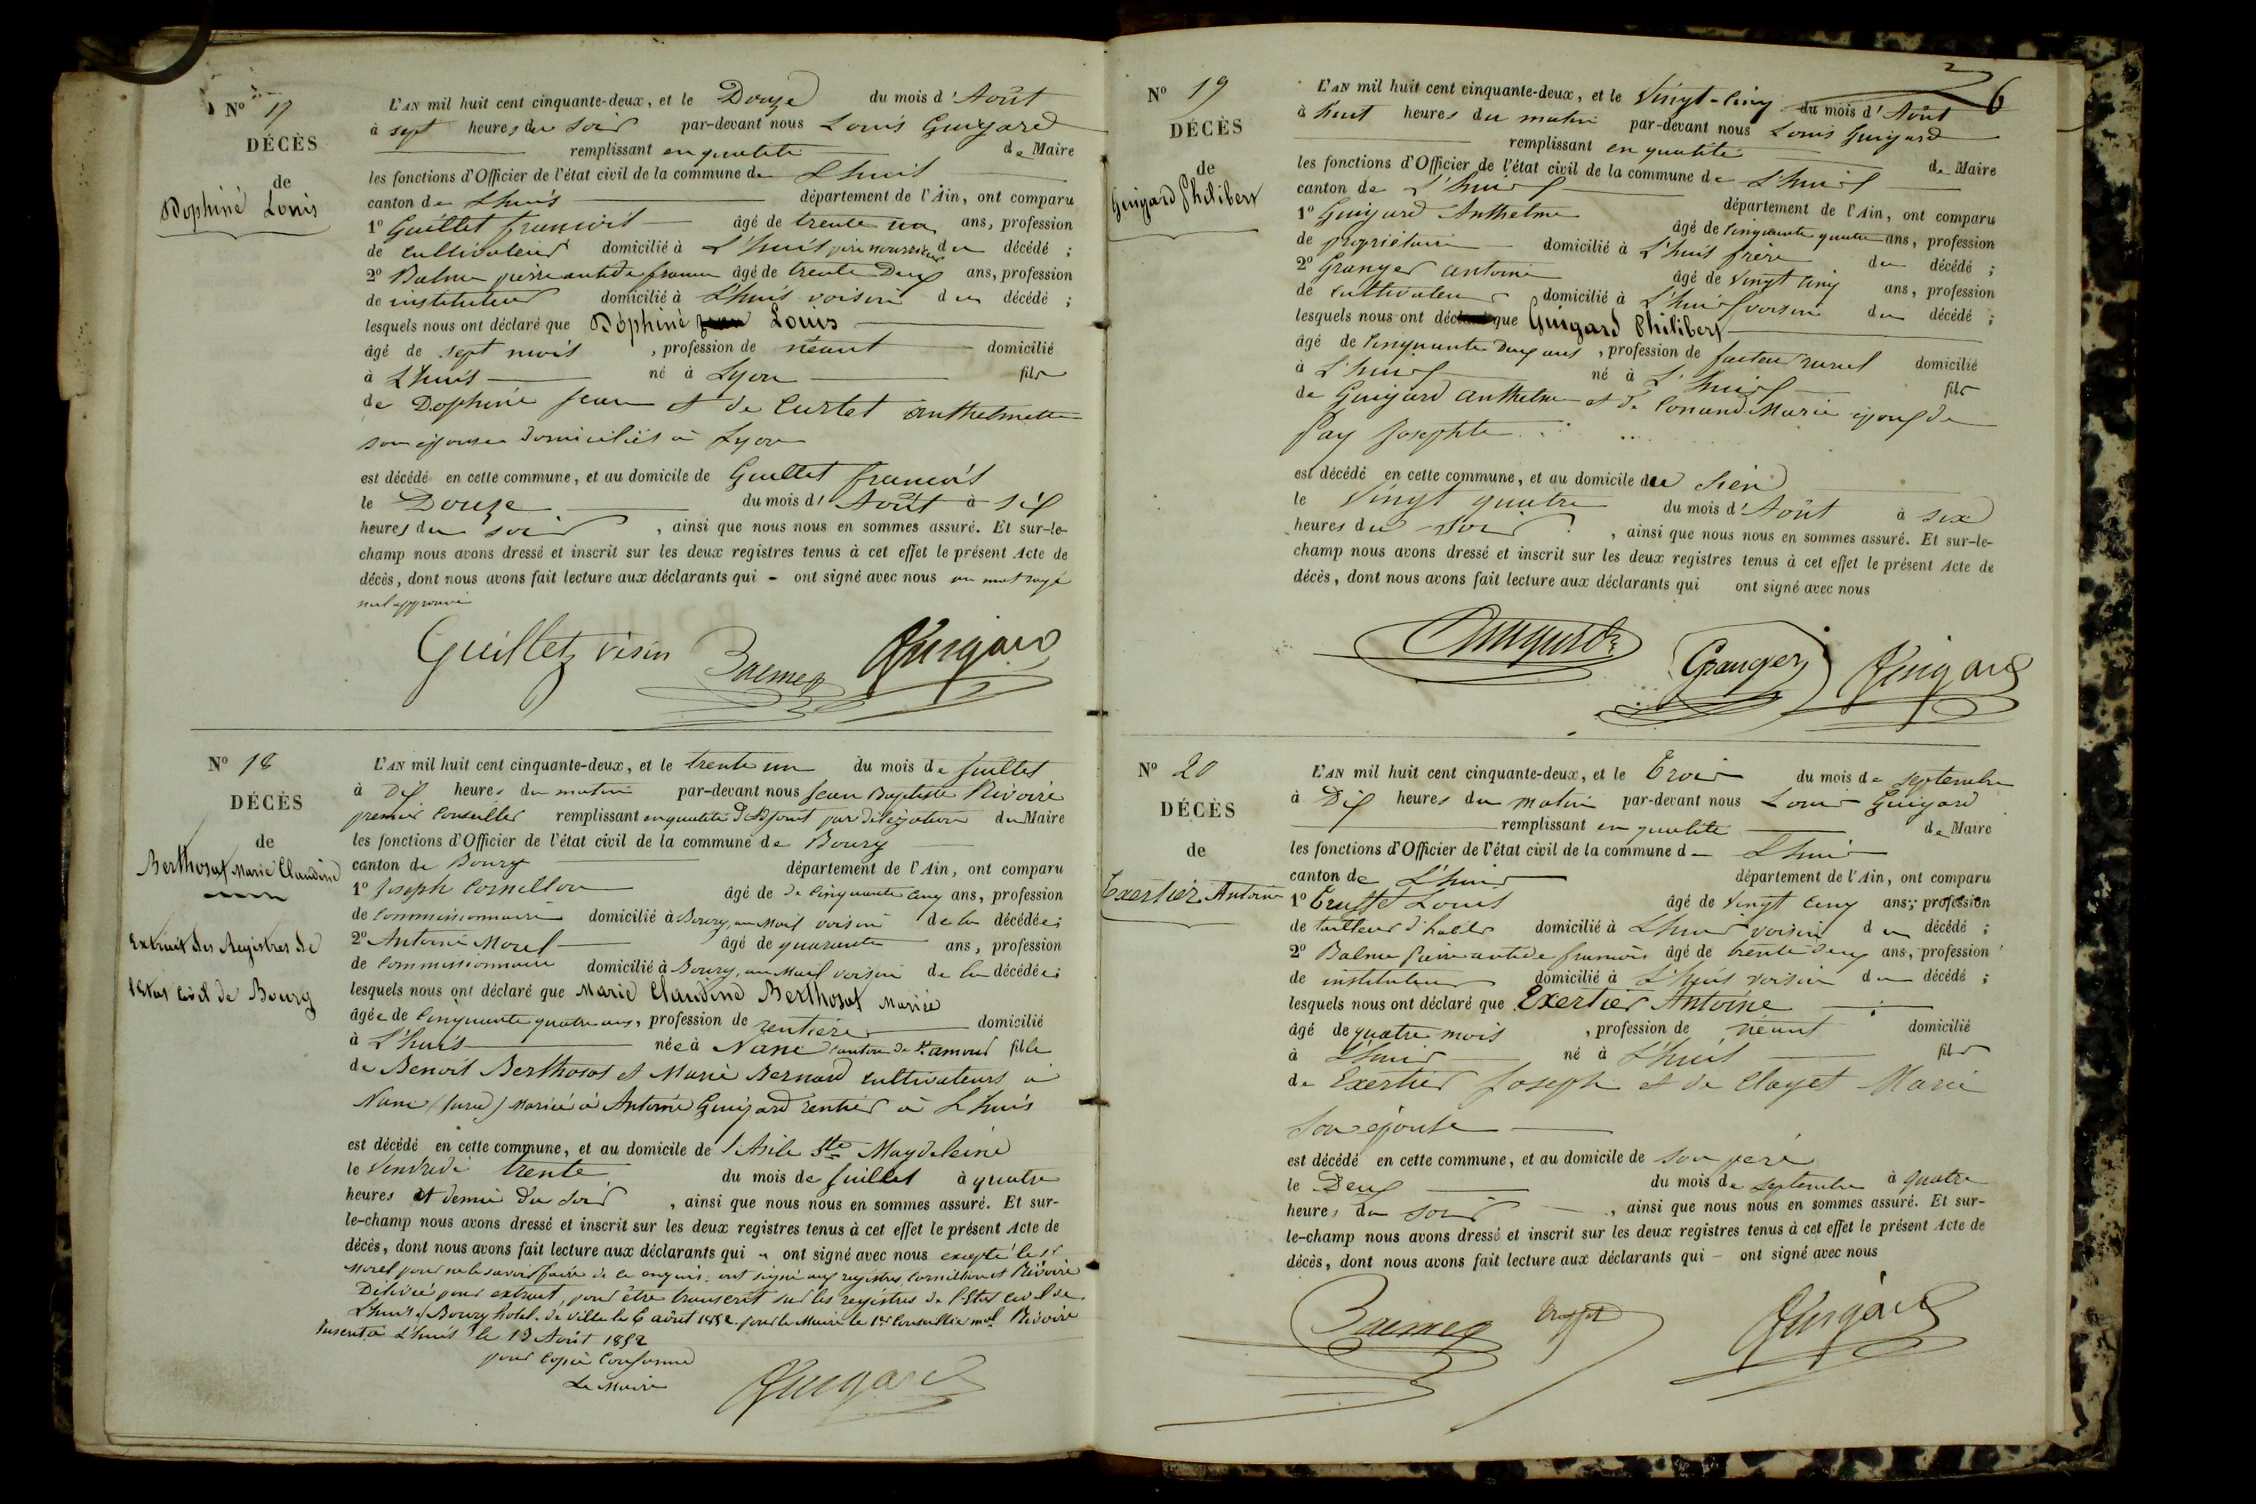 No 17
DÉCÈS
de
Dophiné Louis
L'AN mil huit cent cinquante-deux, et le Douze du mois d'Août
à sept heures du soir par-devant nous Louis Guigard
remplissant en qualité de Maire
les fonctions d'Officier de l'état civil de la commune de Lhuis
canton de Lhuis département de l'Ain, ont comparu
1o Guillet françois âgé de trente un ans, profession
de cultivateur domicilié à L'huis père nourricier du décédé ;
2o Balme pierre antide françois âgé de trente Deux ans, profession
de instituteur domicilié à L'huis voisin du décédé ;
lesquels nous ont déclaré que Dophiné Louis
âgé de sept mois, profession de néant domicilié
à L'huis né à Lyon fils
de Dophiné Jean et de Curtet anthelmette
son épouse domiciliés à Lyon
est décédé en cette commune, et au domicile de Guillet françois
le Douze du mois d'Août à six
heures du soir, ainsi que nous nous en sommes assuré. Et sur-le-
champ nous avons dressé et inscrit sur les deux registres tenus à cet effet le présent Acte de
décès, dont nous avons fait lecture aux déclarants qui - ont signé avec nous un mot rayé
nul approuvé
Guillet Balme Guigard
No 18
DÉCÈS
de
Berthosat Marie Claudine
Extrait des Registres de
l'Etat Civil de Bourg
L'AN mil huit cent cinquante-deux, et le trente un du mois de Juillet
à Dix heures du matin par-devant nous Jean Baptiste Rivoire
premier Conseiller remplissant en qualité d'adjoint par délégation du Maire
les fonctions d'Officier de l'état civil de la commune de Bourg
canton de Bourg département de l'Ain, ont comparu
1o Joseph Cornillon âgé de de Cinquante Cinq ans, profession
de Commissionnaire domicilié à Bourg, au Mail voisin de la décédée ;
2o Antoine Morel âgé de quarante ans, profession
de Commissionnaire domicilié à Bourg, au Mail voisin de la décédée ;
lesquels nous ont déclaré que Marie Claudine Berthosat Mariée
âgée de Cinquante quatre ans, profession de rentière domicilié
à L'huis née à Nanc canton de St amour fille
de Benoit Berthosat et Marie Bernard cultivateurs à
Nanc (Jura) Mariée à Antoine Guigard rentier à L'huis
est décédé en cette commune, et au domicile de l'Asile Ste Magdeleine
le Vendredi trente du mois de Juillet à quatre
heures et demie du soir, ainsi que nous nous en sommes assuré. Et sur-
le-champ nous avons dressé et inscrit sur les deux registres tenus à cet effet le présent Acte de
décès, dont nous avons fait lecture aux déclarants qui ont signé avec nous excepté le sr
Morel pour ne le savoir faire de ce enquis. ont signé aux registres Cornillon et Rivoire
Délivré pour extrait, pour être transcrit sur les registres de l'Etat civil de
L'huis, Bourg hotel de ville le 6 août 1852 pour le Maire le 1er Conseiller mal Rivoire
Inscrit à L'huis le 13 Août 1852
pour copie Conforme
Le Maire
Guigard
6
No 19
DÉCÈS
de
Guigard Philibert
L'AN mil huit cent cinquante-deux, et le Vingt-Cinq du mois d'Août
à huit heures du matin par-devant nous Louis Guigard
remplissant en qualité de Maire
les fonctions d'Officier de l'état civil de la commune de L'huis
canton de L'huis département de l'Ain, ont comparu
1o Guigard Anthelme âgé de Cinquante quatre ans, profession
de propriétaire domicilié à L'huis frère du décédé ;
2o Granger antoine âgé de Vingt Cinq ans, profession
de cultivateur domicilié à L'huis voisin du décédé ;
lesquels nous ont déclaré que Guigard Philibert
âgé de Cinquante Deux ans, profession de facteur rural domicilié
à L'huis né à L'huis fils
de Guigard anthelme et de Conand Marie époux de
Pay Josephte
est décédé en cette commune, et au domicile du sien
le Vingt quatre du mois d'Août à six
heures du soir, ainsi que nous nous en sommes assuré. Et sur-le-
champ nous avons dressé et inscrit sur les deux registres tenus à cet effet le présent Acte de
décès, dont nous avons fait lecture aux déclarants qui ont signé avec nous
Guigard Granger Guigard
No 20
DÉCÈS
de
Exertier Antoine
L'AN mil huit cent cinquante-deux, et le Trois du mois de septembre
à Dix heures du matin par-devant nous Louis Guigard
remplissant en qualité de Maire
les fonctions d'Officier de l'état civil de la commune d L'huis
canton de L'huis département de l'Ain, ont comparu
1o Truffet Louis âgé de Vingt Cinq ans, profession
de tailleur d'habits domicilié à L'huis voisin du décédé ;
2o Balme Pierre antide françois âgé de trente deux ans, profession
de instituteur domicilié à L'huis voisin du décédé ;
lesquels nous ont déclaré que Exertier Antoine
âgé de quatre mois, profession de néant domicilié
à L'huis né à L'huis fils
de Exertier Joseph et de Clayet Marie
Son épouse
est décédé en cette commune, et au domicile de son père
le Deux du mois de septembre à quatre
heures du soir, ainsi que nous nous en sommes assuré. Et sur-
le-champ nous avons dressé et inscrit sur les deux registres tenus à cet effet le présent Acte de
décès, dont nous avons fait lecture aux déclarants qui - ont signé avec nous
Balme Truffet Guigard